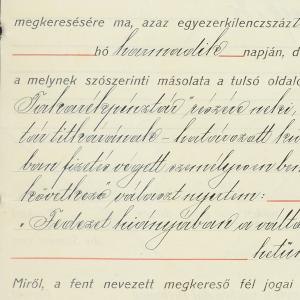 megkeresésére ma, azaz egyezerkilenczszáz
hó harmadik napján, d
a melynek szószerinti másolata a tulsó oldalo
Takarékpénztár" részére neki,
tár titkárának – határozott ki
ban fizetés végett személyem be
következő választ nyertem:
„Fedezet hiányában a váltó
hetün
Miről, a fent nevezett megkereső fél jogai